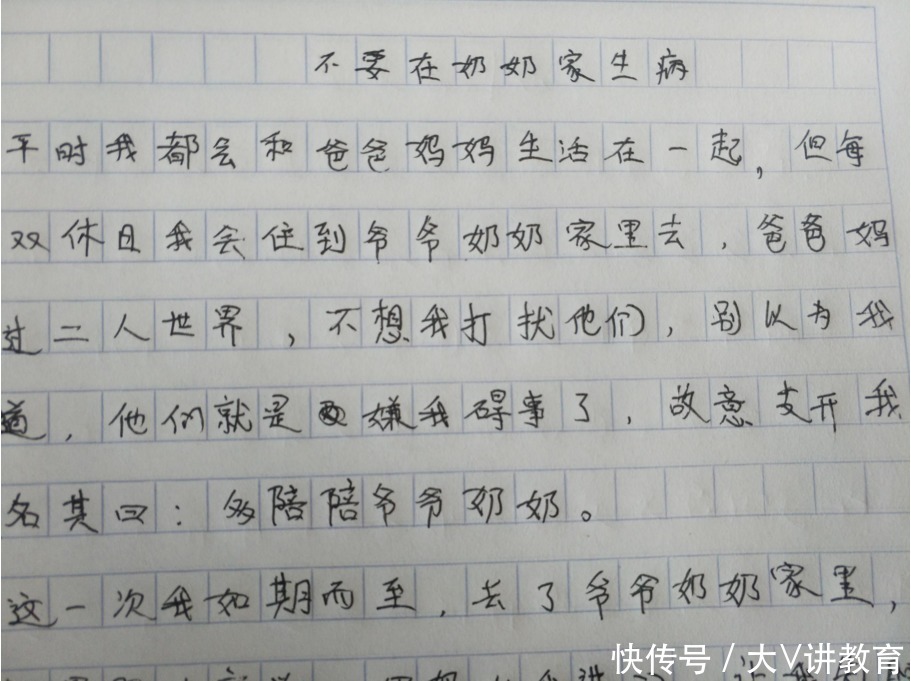 不要在奶奶家生病
平时我都会和爸爸妈妈生活在一起，但每
双休日我会住到爷爷奶奶家里去，爸爸妈
过二人世界，不想我打扰他们，别以为我
道，他们就是嫌我碍事了，故意支开我
名其曰：多陪陪爷爷奶奶。
这一次我如期而至，去了爷爷奶奶家里，
快传号/大V讲教育